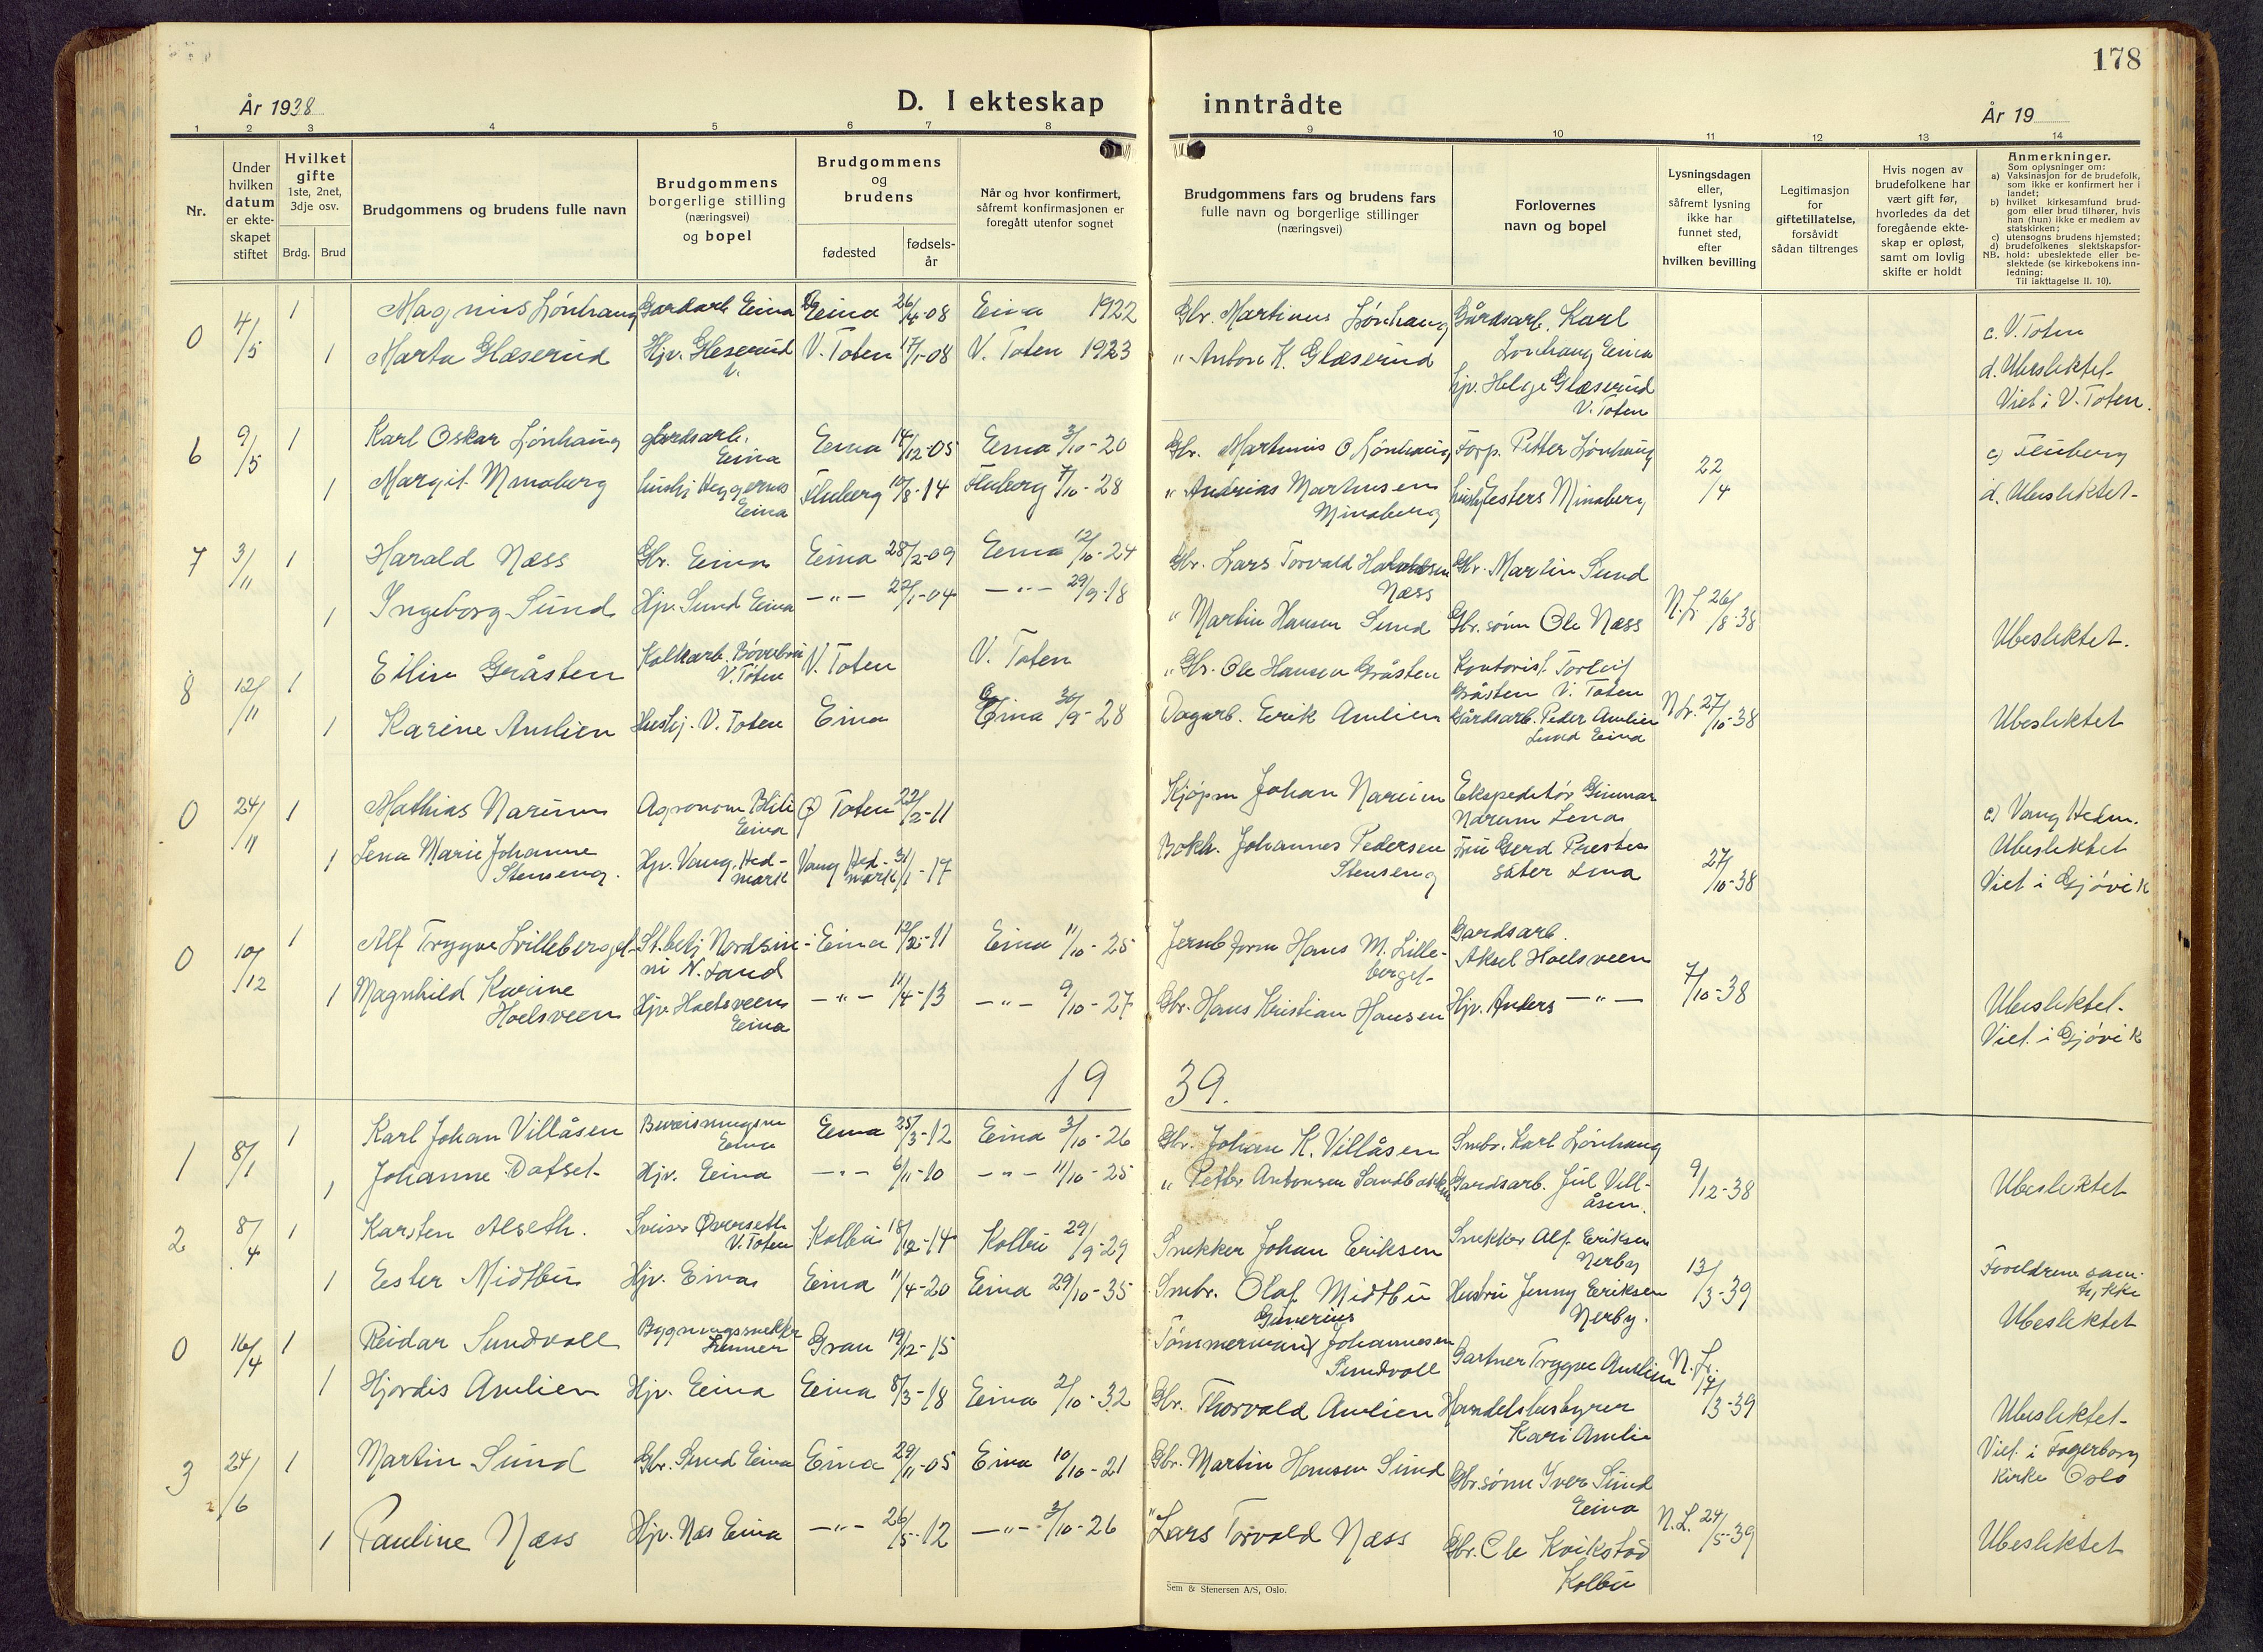 178
År 1938
D. I ekteskap inntrådte
År 19
1 2 3 4 5 6 7 8 9 10 11 12 13 14
Nr.
Under hvilken datum er ekte-skapet stiftet
Hvilket gifte
1ste, 2net, 3dje osv.
Brdg. Brud
Brudgommens og brudens fulle navn
Brudgommens borgerlige stilling (næringsvei) og bopel
Brudgommens og brudens
fødested
fødsels-år
Når og hvor konfirmert, såfremt konfirmasjonen er foregått utenfor sognet
Brudgommens fars og brudens fars fulle navn og borgerlige stillinger (næringsvei)
Forlovernes navn og bopel
Lysningsdagen eller, såfremt lysning ikke har funnet sted, efter hvilken bevilling
Legitimasjon for giftetillatelse, forsåvidt sådan tiltrenges
Hvis nogen av brudefolkene har vært gift før, hvorledes da det foregående ekte-skap er opløst, samt om lovlig skifte er holdt
Anmerkninger.
Som oplysninger om:
a) Vaksinasjon for de brudefolk, som ikke er konfirmert her i landet;
b) hvilket kirkesamfund brud-gom eller brud tilhører, hvis han (hun) ikke er medlem av statskirken;
c) utensogns brudens hjemsted;
d) brudefolkenes slektskapsfor-hold: ubeslektede eller be-slektede (se kirkebokens inn-ledning:
NB.
Til iakttagelse II. 10).
0 4/5 1 Magnus Lønhaug Gardarb Eina Eina 26/4-08 Eina 1922 Gbr. Martinus Lønhaug Gårdsarb. Karl Lønhaug Eina
1 Marta Glæserud Hjv. Glæserud V. V. Toten 17/1-08 V. Toten 1923 " Anton K. Glæserud hjv. Helge Glæserud V. Toten
c. V. Toten
d. Ubeslektet.
Viet i V. Toten.
6 9/5 1 Karl Oskar Lønhaug gårdsarb. Eina Eina 14/12-05 Eina 3/10-20 Gbr. Martinus O Lønhaug Forp. Petter Lønhaug 22/4
1 Margit Minaberg hushj Heggernes Eina Fluberg 10/8-14 Fluberg 7/10-28 " Andrias Martinsen Minaberg Minaberg
c) Fluberg
d. Ubeslektet-
7 3/11 1 Harald Næss Gbr. Eina Eina 28/2-09 Eina 12/10-24 Gbr. Lars Torvald Haraldsen Næss Gbr. Martin Sund
1 Ingeborg Sund Hjv. Sund Eina -"- 22/1-04 -"- 29/9-18 " Martin Hansen Sund Gbr. sønn Ole Næss N.Fr. 26/8-38 Ubeslektet.
8 12/11 1 Eilin Gråsten Kolkarb. Bøverbru V. Toten V. Toten V. Toten " Gbr. Ole Hansen Gråsten Kontorist Torleif Gråsten V. Toten
1 Karine Amlien Hushj. V. Toten Eina Eina 30/9-28 Dagarb. Erik Amlien Gårdsarb. Peder Amlien Sund Eina N.Fr. 27/10-38 Ubeslektet
0 24/11 1 Mathias Narum Agronom Blili Eina Ø Toten 22/2-11 Kjøpm Johan Narum Ekspeditør Gunnar Narum Lena
1 Lena Marie Johanne Stenseng. Hjv. Vang. Hed-mark Vang Hed-mark 31/1-17 Bokh. Johannes Pedersen Stenseng Gerd Prestesæter Lena 27/10-38
c) Vang Hedm.
Ubeslektet
Viet i Gjøvik
0 10/12 1 Alf Trygve Lilleberget St.betj Nordsin-ni N. Land Eina 12/2-11 Eina 11/10-25 Jernb form Hans M. Lille-berget Gardsarb. Aksel Hoelsveen
1 Magnhild Karine Hoelsveen Hjv Hoelsveen Eina -"- 11/4-13 -"- 9/10-27 Gbr. Hans Kristian Hansen Hjv. Anders -"- 7/10-38
Ubeslektet.
Viet i Gjøvik
19 39.
1 8/1 1 Karl Johan Villåsen Bureisningsm Eina Eina 25/3-12 Eina 3/10-26 Gbr. Johan K. Villåsen Smbr. Karl Lønhaug
1 Johanne Dafset Hjv. Eina -"- 6/11-10 -"- 11/10-25 " Petter Antonsen Sandbakken Gardsarb. Jul Vill-åsen. 9/12-38 Ubeslektet
2 8/4 1 Karsten Alseth. Sveiser Øverseth V. Toten Kolbu 18/12-14 Kolbu 29/9-29 Snekker Johan Eriksen Snekker Alf Eriksen Nerby
1 Ester Midtbu Hjv. Eina Eina 11/4-20 Eina 29/10-35 Smbr. Olaf Midtbu Hustru Jenny Eriksen Nerby. 13/3-39
Foreldrene sam-tykke
Ubeslektet
0 16/4 1 Reidar Sundvoll Bygningssnekker Lunner Gran 19/12-15 Tømmermann Gunerius Johannesen Sundvoll Gartner Trygve Amlien
1 Hjordis Amlien Hjv. Eina Eina 8/3-18 Eina 2/10-32 Gbr. Thorvald Amlien Handelsbestyrer Kari Amlie N.Fr. 17/3-39
Ubeslektet-
Viet i Fagerborg Kirke Oslo
3 24/6 1 Martin Sund Gbr. Sund Eina Eina 29/11-05 Eina 10/10-21 Gbr. Martin Hansen Sund Gbr. sønn Iver Sund Eina
1 Pauline Næss Hjv. Næs Eina -"- 26/5-12 -"- 3/10-26 " Lars Torvald Næss Gbr. Ole Kvikstad Kolbu N.L. 24/5-39 Ubeslektet
Sem & Stenersen A/S, Oslo.